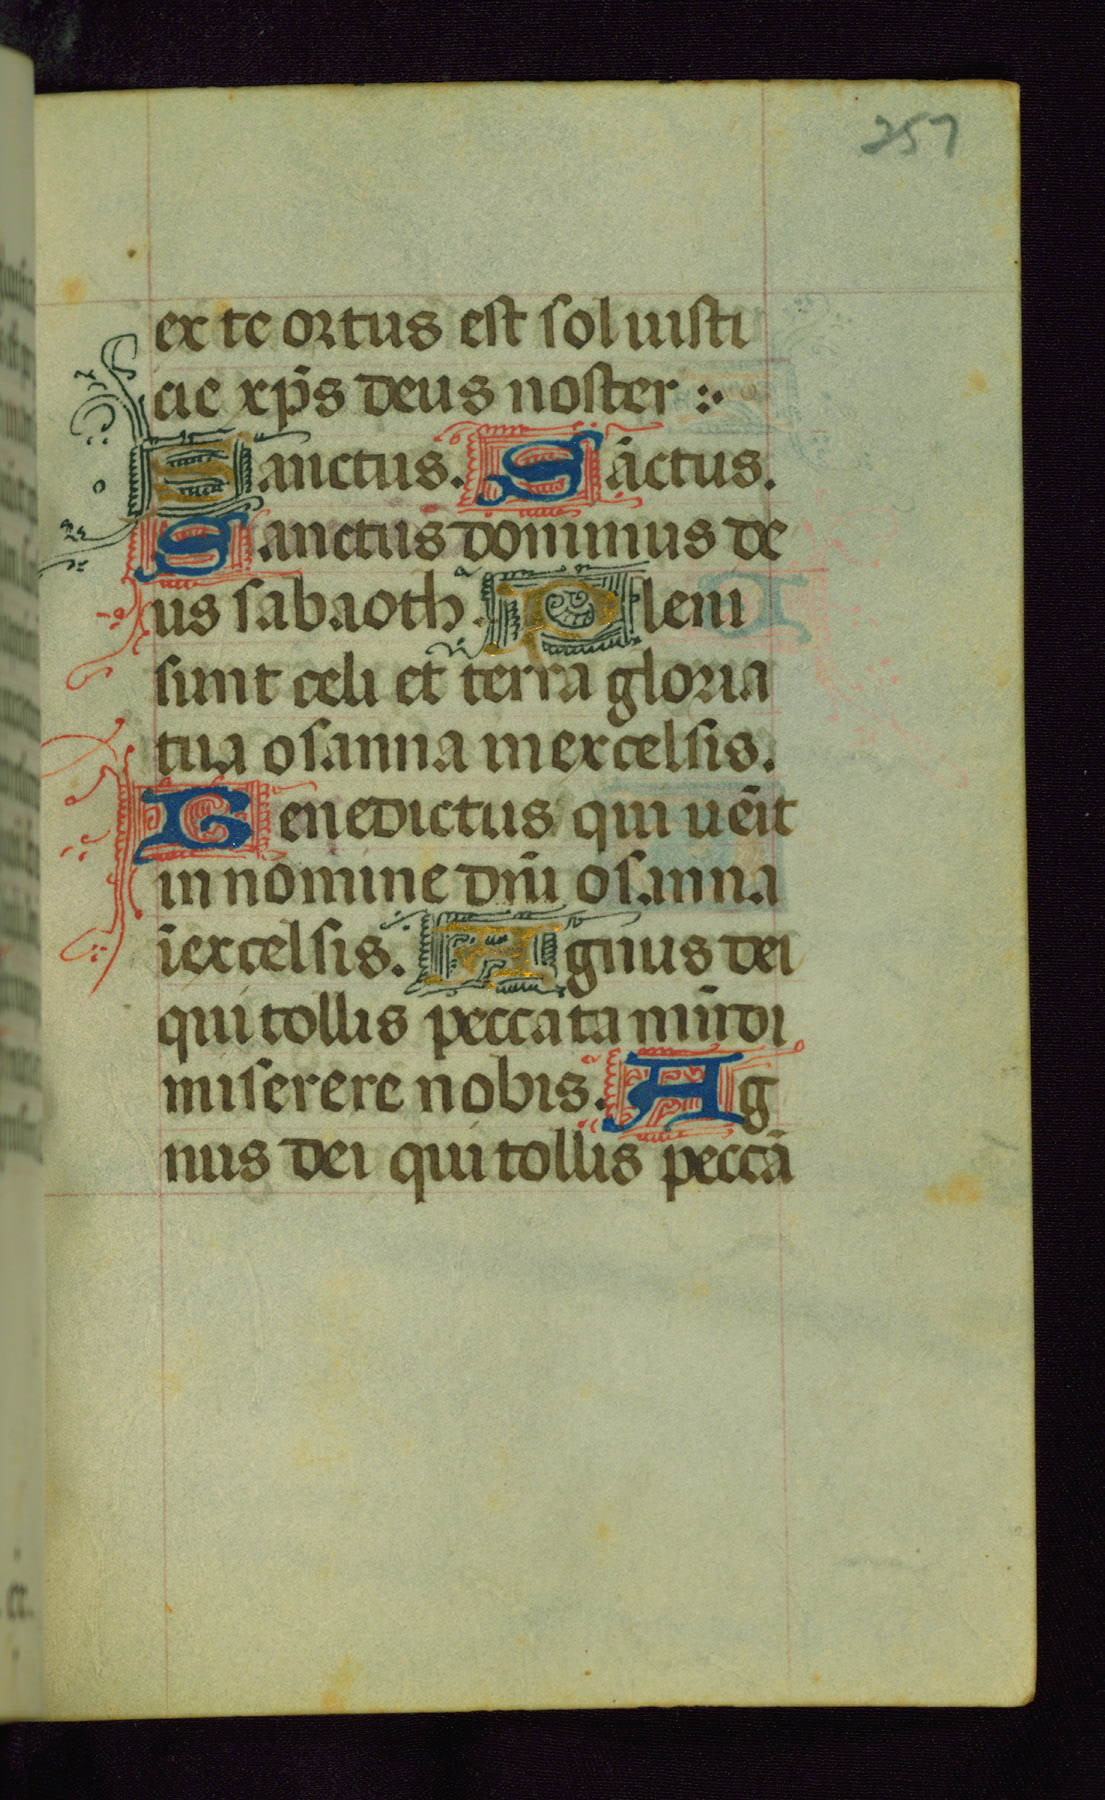 257
ex te ortus est sol iusti
cie xp̄s deus noster :·
Sanctus. Sāctus.
Sanctus dominus de
us sabaoth. Pleni
sunt celi et terra gloria
tua osanna in excelsis.
Benedictus qui uēit
in nomine dn̄i osanna
īexcelsis. Agnus dei
qui tollis peccata mūdi
miserere nobis. Ag
nus dei qui tollis peccā